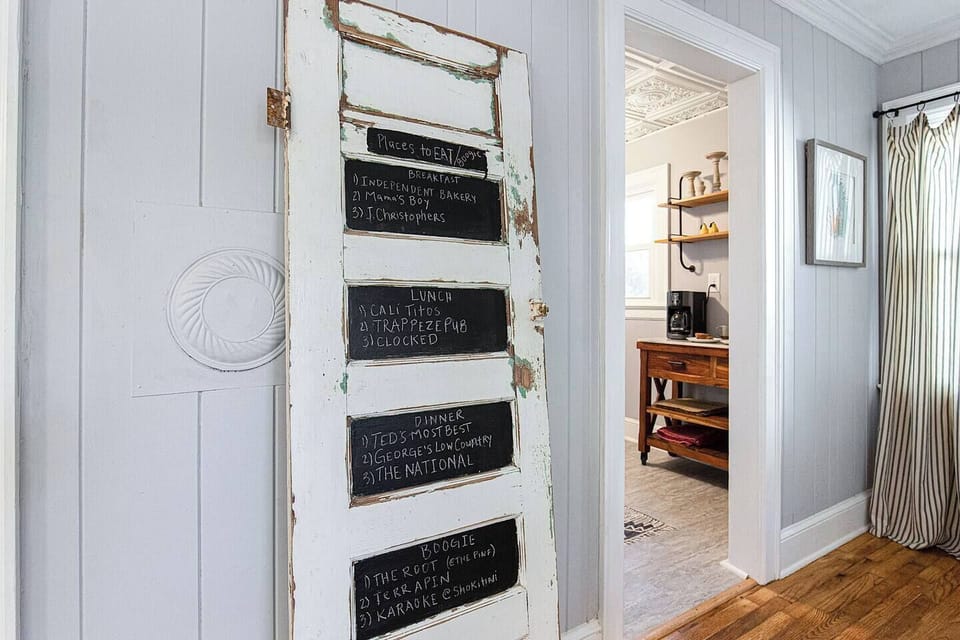 Places to EAT/Boogie
BREAKFAST
1) INDEPENDENT BAKERY
2) MAMA'S BOY
3) J. Christophers
LUNCH
1) CALI TITOS
2) TRAPPEZE PUB
3) CLOCKED
DINNER
1) TED'S MOST BEST
2) GEORGE'S LOW COUNTRY
3) THE NATIONAL
BOOGIE
1) THE ROOT (ETHE PINE)
2) TERRAPIN
3) KARAOKE @ SHOKITINI